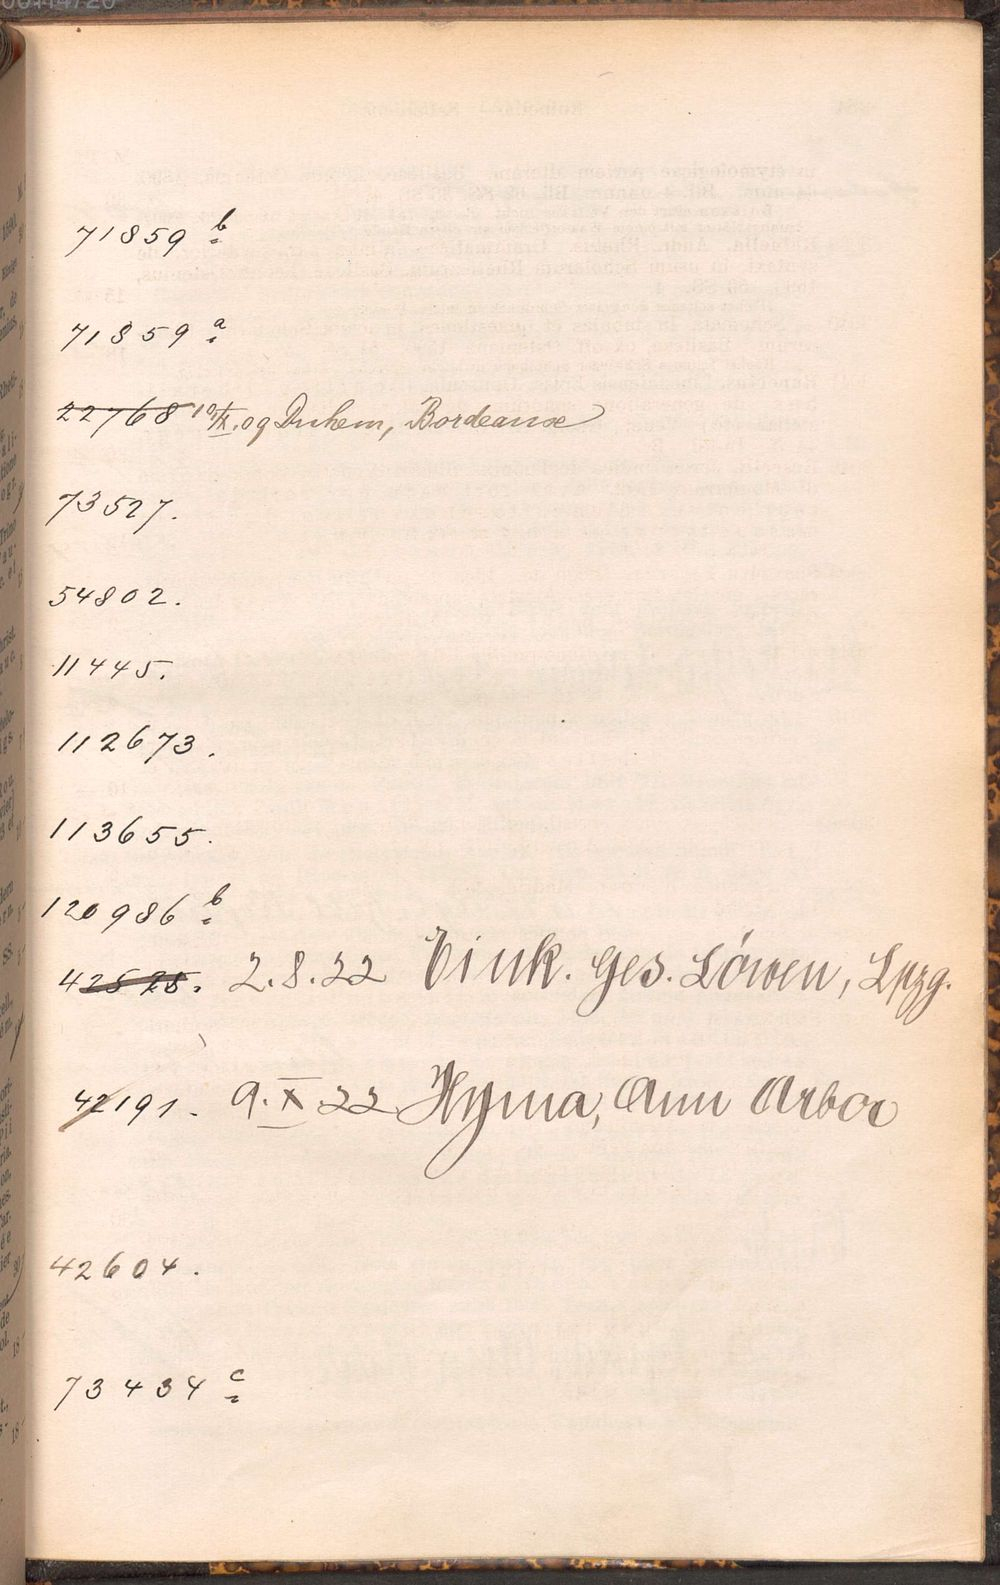 71859 b
71859 a
22768 10/IX. 09 Duhem, Bordeaux
73527.
54802.
11445.
112673.
113655.
120986 b
42525. 2.8.22 Eink. Ges. Löwen, Lpzg.
42191. 9.X 22 Hyma, Ann Arbor
42604.
73434 c